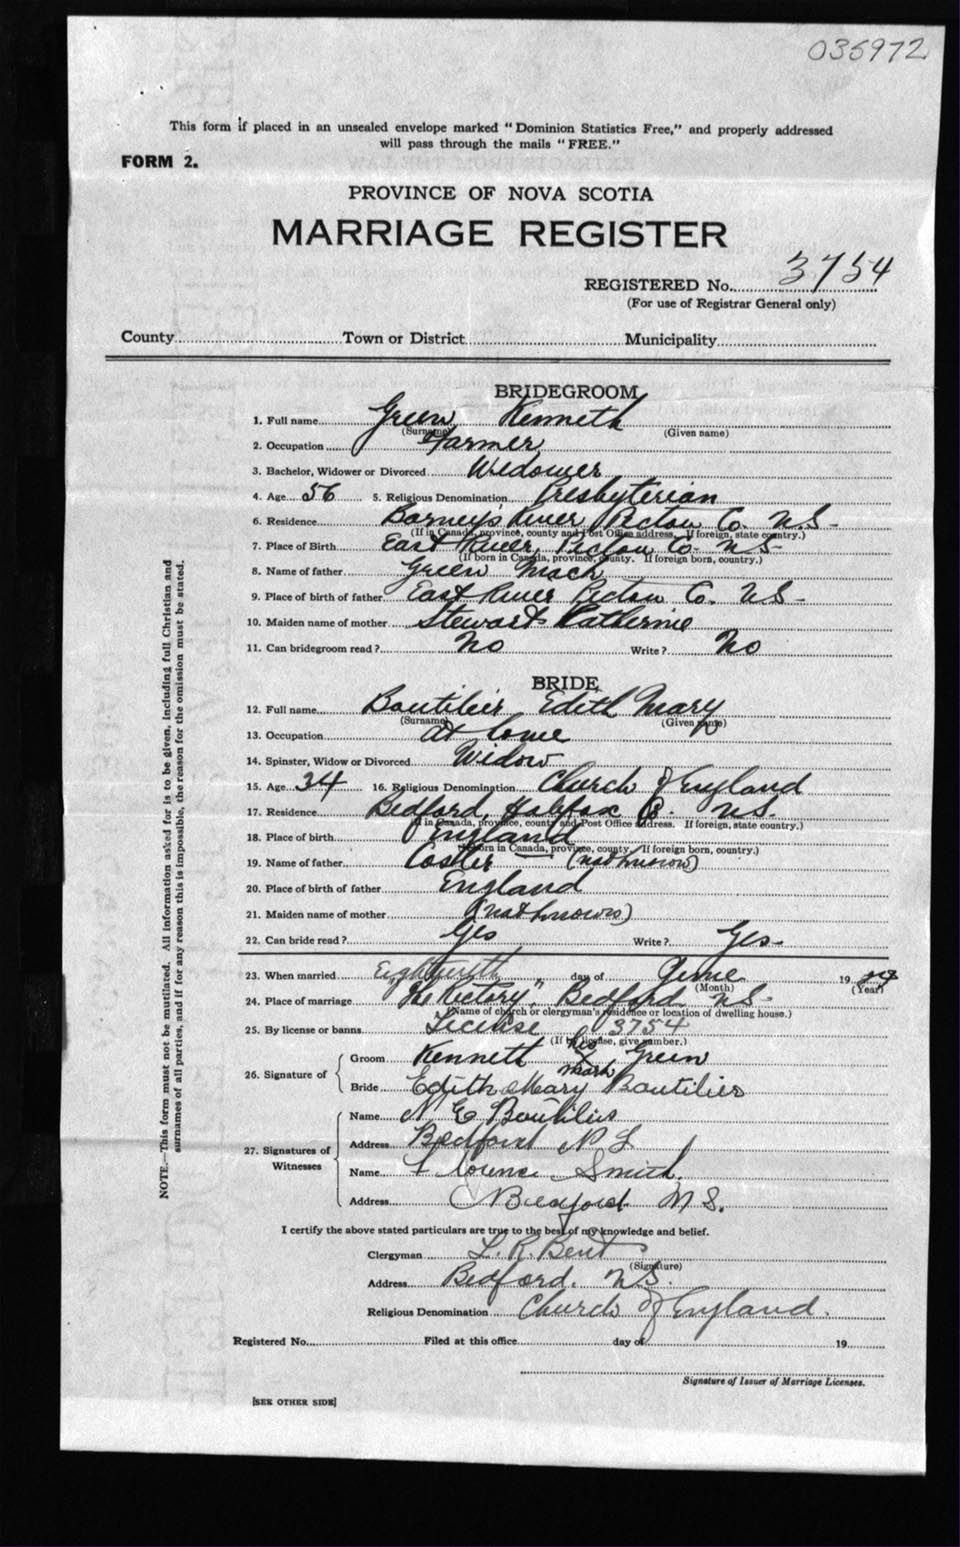 035972
This form if placed in an unsealed envelope marked "Dominion Statistics Free," and properly addressed
will pass through the mails "FREE."
FORM 2.
PROVINCE OF NOVA SCOTIA
MARRIAGE REGISTER
REGISTERED No. 3754
(For use of Registrar General only)
County Town or District Municipality
BRIDEGROOM
1. Full name Green Kenneth
(Surname) (Given name)
2. Occupation Farmer
3. Bachelor, Widower or Divorced Widower
4. Age 56 5. Religious Denomination Presbyterian
6. Residence Barney's River Pictou Co. N.S.
(If in Canada, province, county and Post Office address. If foreign, state country.)
7. Place of Birth East River, Pictou Co. N.S.
(If born in Canada, province, county. If foreign born, country.)
8. Name of father Green Mack
9. Place of birth of father East River Pictou Co. N.S.
10. Maiden name of mother Stewart Katherine
11. Can bridegroom read? No Write? No
BRIDE
12. Full name Boutilier Edith Mary
(Surname) (Given name)
13. Occupation At home
14. Spinster, Widow or Divorced Widow
15. Age 34 16. Religious Denomination Church of England
17. Residence Bedford, Halifax Co. N.S.
(If in Canada, province, county and Post Office address. If foreign, state country.)
18. Place of birth England
(If born in Canada, province, county. If foreign born, country.)
19. Name of father Coster — (not known)
20. Place of birth of father England
21. Maiden name of mother (not known)
22. Can bride read? Yes Write? Yes
23. When married day of June 19
(Month) (Year)
24. Place of marriage "The Rectory". Bedford N.S.
(Name of church or clergyman's residence or location of dwelling house.)
25. By license or banns License 3754
(If by license, give number.)
26. Signature of
Groom Kenneth his X mark Green
Bride Edith Mary Boutilier
27. Signatures of Witnesses
Name N E Boutilier
Address Bedford N S
Name Florence Smith.
Address Bedford N.S.
I certify the above stated particulars are true to the best of my knowledge and belief.
Clergyman L. R. Bent
(Signature)
Address Bedford. N.S.
Religious Denomination Church of England.
Registered No. Filed at this office day of 19
Signature of Issuer of Marriage Licenses.
[SEE OTHER SIDE]
NOTE.—This form must not be mutilated. All information asked for is to be given, including full Christian and
surnames of all parties, and if for any reason this is impossible, the reason for the omission must be stated.